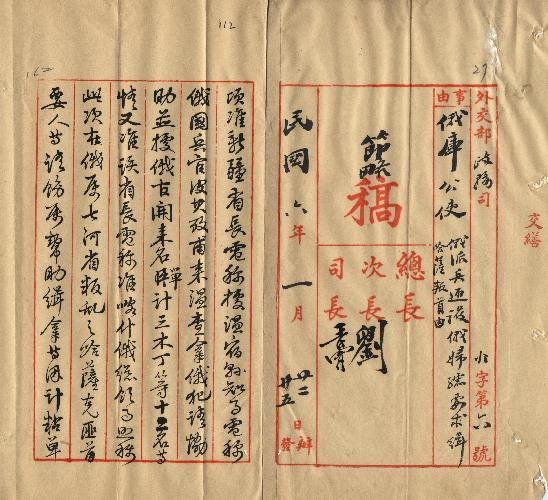 外交部 政務司
事由
俄庫公使
俄派兵迎護俄婦孺要求緝
哈薩叛首由
北字第六號
節略
稿
總長
次長 劉
司長
民國六年一月廿二日辦
廿五發
交繕
27
112
162
頃准新疆省長電稱據溫宿縣知事電稱
俄國兵官波力發甫來溫查拿俄犯請協
助並據俄古開來名單計三木丁等十二名等
情又准該省長電稱准喀什俄總領事照稱
此次在俄屬七河省叛亂之哈薩克匪首
要人等請飭屬幫助緝拿等因計粘單